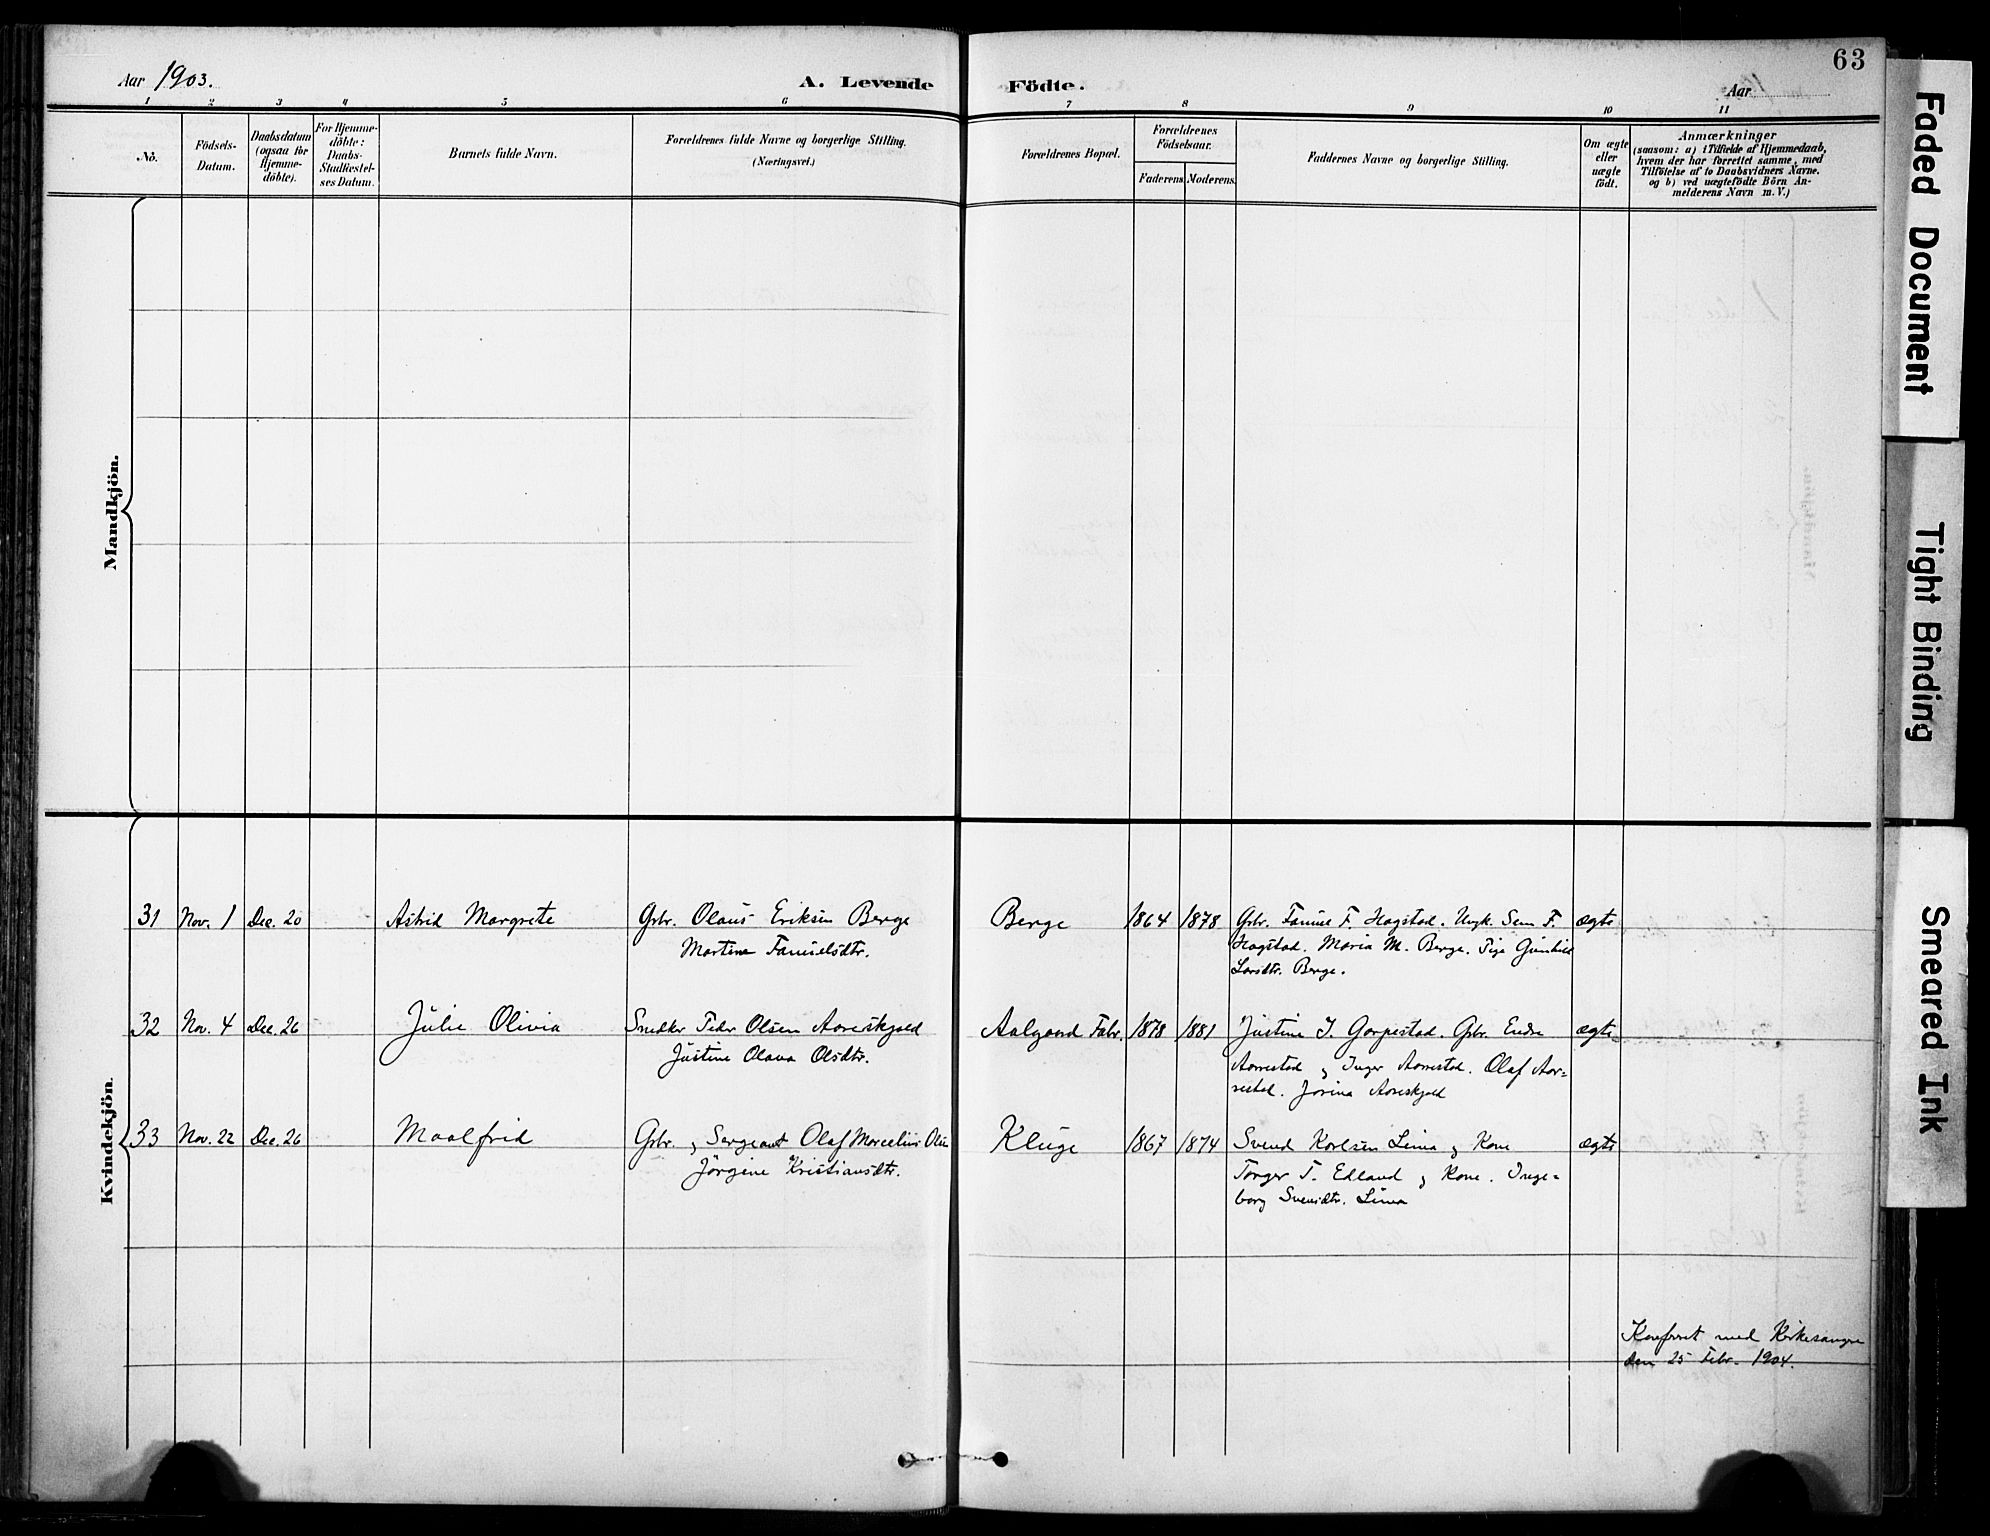 63
Aar 1903.
A. Levende Födte.
Aar
1 2 3 4 5 6 7 8 9 10 11
No.
Födsels-
Datum.
Daabsdatum
(ogsaa for
Hjemme-
döbte).
For Hjemme-
döbte:
Daabs-
Stadfæstel-
ses Datum.
Barnets fulde Navn.
Forældrenes fulde Navne og borgerlige Stilling.
(Næringsvei.)
Forældrenes Bopæl.
Forældrenes
Födselsaar.
Faderens. Moderens.
Faddernes Navne og borgerlige Stilling.
Om ægte
eller
uægte
födt.
Anmærkninger
(saasom: a) i Tilfælde af Hjemmedaab,
hvem der har forrettet samme, med
Tilföielse af to Daabsvidners Navne.
og b) ved uægtefödte Börn An-
melderens Navn m. V.)
Mandkjön.
Kvindekjön.
31 Nov. 1 Dec. 20 Astrid Margrete Grbr. Olaus Eriksen Berge Berge 1864 1878 Grbr. Tønnes F. Hagstad. Ungk. Sem F. ægte
Martine Tønnesdtr. Hagstad. Maria M. Berge. Pige Gunhild
Larsdtr. Berge.
32 Nov. 4 Dec. 26 Julie Olivia Snedker Peder Olsen Aareskjold Aalgaard Fabr. 1878 1881 Justine J. Gorpestad. Grbr. Endre ægte
Justine Olava Olsdtr. Aarrestad og Inger Aarrestad. Olaf Aar=
restad. Jorina Aareskjold
33 Nov. 22 Dec. 26 Maalfrid Grbr. og Sergeant Olaf Marcelius Olsen Kluge 1867 1874 Svend Karlsen Lima og Kone ægte
Jörgine Kristiansdtr. Torger T. Edland og Kone. Inge=
borg Svensdtr. Lima
Konferert med Kirkesangeren
den 25 Febr. 1904.
Faded Document
Tight Binding
Smeared Ink